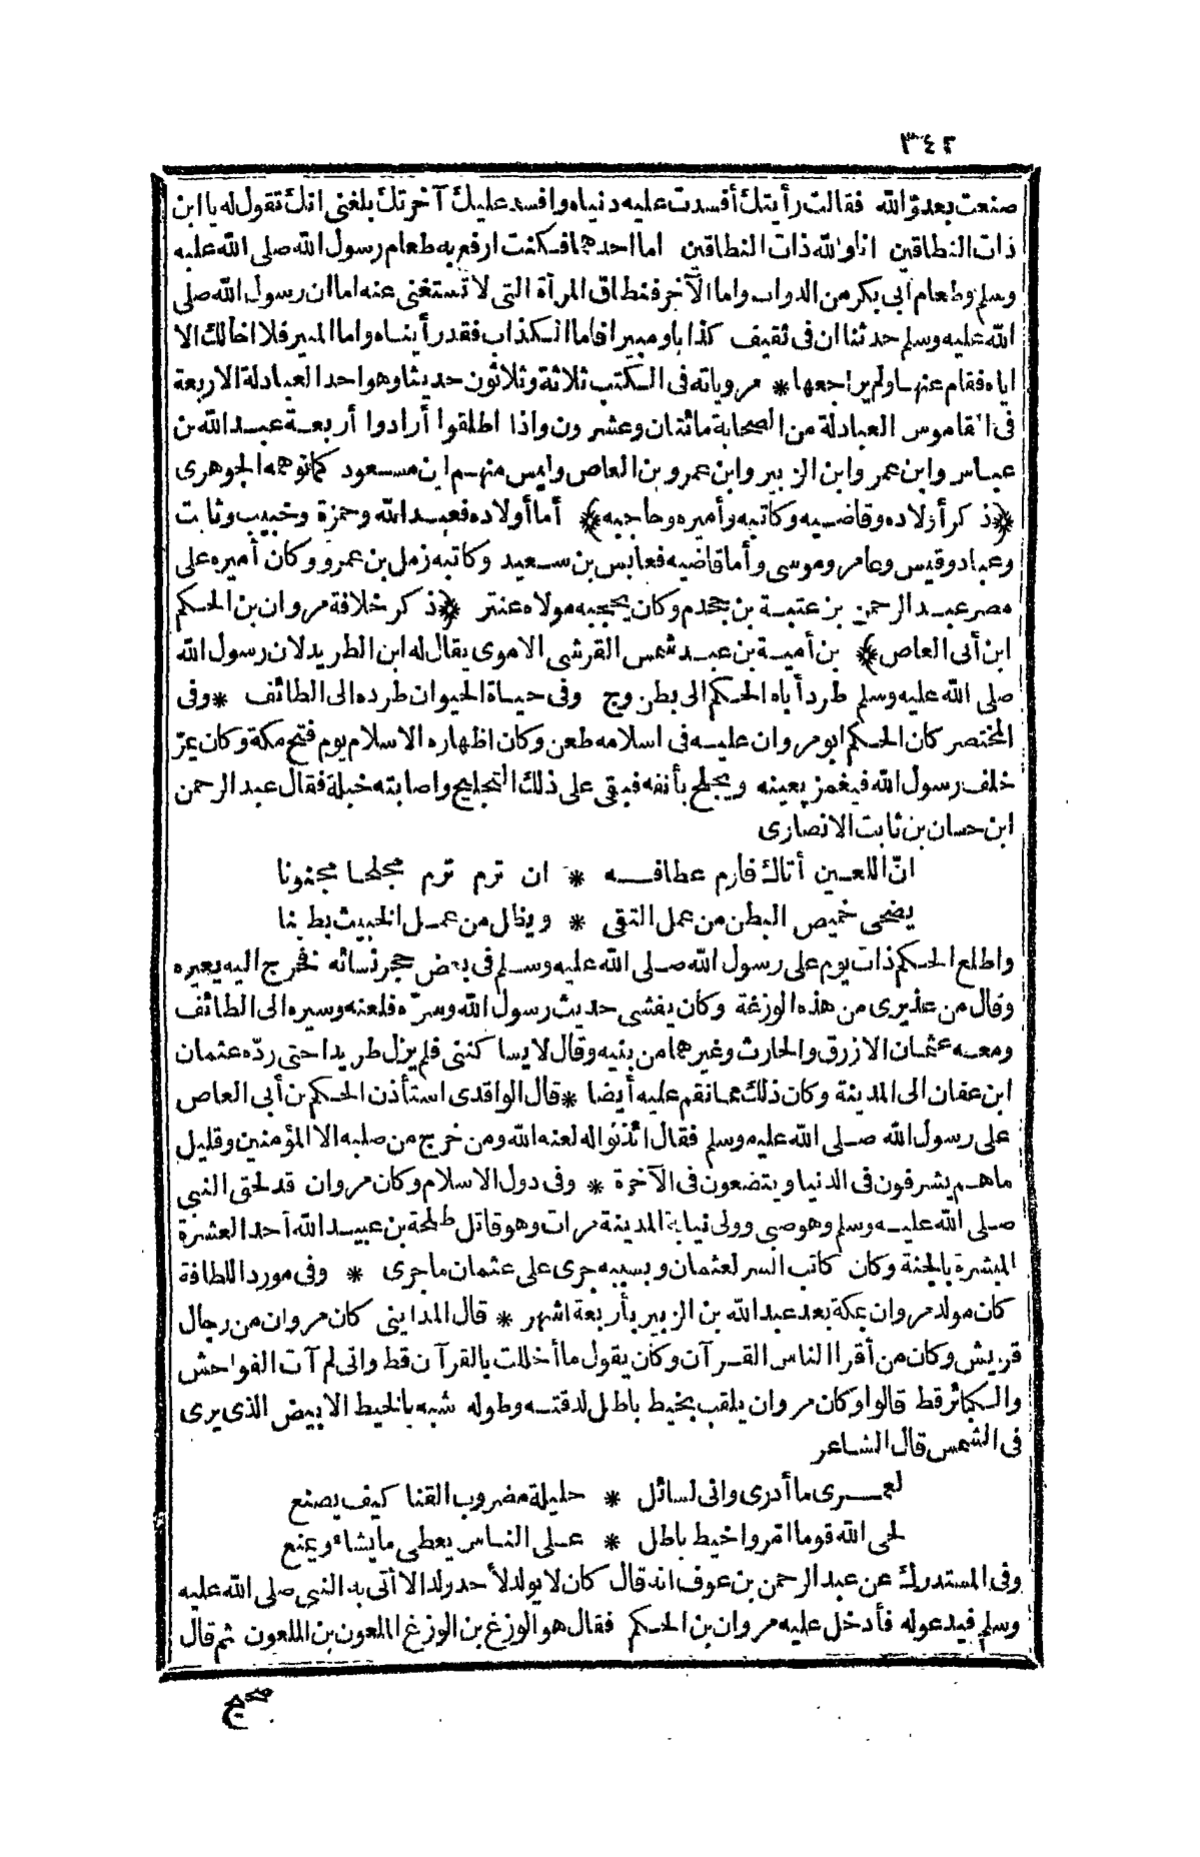 ٣٤٢
صنعت بعدوّ الله فقالت رأيتك أفسدت عليه دنياه وافسد عليك آخرتك بلغنى انك تقول له يا ابن
ذات النطاقين انا والله ذات النطاقين اما احدهما فكنت ارفع به طعام رسول الله صلى الله عليه
وسلم وطعام أبى بكر من الدواب واما الآخر فنطاق المرآة التى لا تستغنى عنه اما ان رسول الله صلى
الله عليه وسلم حدثنا ان فى ثقيف كذابا ومبيرا فاما الكذاب فقد رأيناه واما المبير فلا اخالك الا
اياه فقام عنها ولم يراجعها * مروياته فى الكتب ثلاثة وثلاثون حديثا وهو احد العبادلة الاربعة
فى القاموس العبادلة من الصحابة مائتان وعشرون واذا اطلقوا أرادوا أربعة عبد الله بن
عباس وابن عمر وابن الزبير وابن عمرو بن العاص وليس منهم ابن مسعود كما توهمه الجوهرى
﴿ذكر أولاده وقاضيه وكاتبه وأميره وحاجبه﴾ أما أولاده فعبد الله وحمزة وخبيب وثابت
وعباد وقيس وعامر وموسى وأما قاضيه فعابس بن سعيد وكاتبه زمل بن عمرو وكان أميره على
مصر عبد الرحمن بن عتبة بن جحدم وكان يحجبه مولاه عنتر ﴿ذكر خلافة مروان بن الحكم
ابن أبى العاص﴾ بن أمية بن عبد شمس القرشى الاموى يقال له ابن الطريد لان رسول الله
صلى الله عليه وسلم طرد أباه الحكم الى بطن وج وفى حياة الحيوان طرده الى الطائف * وفى
المختصر كان الحكم ابو مروان عليه فى اسلامه طعن وكان اظهاره الاسلام يوم فتح مكة وكان يمرّ
خلف رسول الله فيغمز بعينه ويجلح بأنفه فبقى على ذلك التجليح واصابته خبلة فقال عبد الرحمن
ابن حسان بن ثابت الانصارى
انّ اللعين أتاك فارم عطافه * ان ترم ترم مجلحا مجنونا
يضحى خميص البطن من عمل التقى * وينال من عمل الخبيث بطينا
واطلع الحكم ذات يوم على رسول الله صلى الله عليه وسلم فى بعض حجر نسائه فخرج اليه يعيره
وقال من عذيرى من هذه الوزغة وكان يفشى حديث رسول الله وسرّه فلعنه وسيره الى الطائف
ومعه عثمان الازرق والحارث وغيرهما من بنيه وقال لا يساكننى فلم يزل طريدا حتى ردّه عثمان
ابن عفان الى المدينة وكان ذلك مما نقم عليه أيضا * قال الواقدى استأذن الحكم بن أبى العاص
على رسول الله صلى الله عليه وسلم فقال ائذنوا له لعنه الله ومن خرج من صلبه الا المؤمنين وقليل
ما هم يشرفون فى الدنيا ويتضعون فى الآخرة * وفى دول الاسلام وكان مروان قد لحق النبى
صلى الله عليه وسلم وهو صبى وولى نيابة المدينة مرات وهو قاتل طلحة بن عبيد الله أحد العشرة
المبشرة بالجنة وكان كاتب السر لعثمان وبسببه جرى على عثمان ما جرى * وفى مورد اللطافة
كان مولد مروان بمكة بعد عبد الله بن الزبير بأربعة اشهر * قال المداينى كان مروان من رجال
قريش وكان من أقرا الناس القرآن وكان يقول ما أخللت بالقرآن قط وانى لم آت الفواحش
والكبائر قط قالوا وكان مروان يلقب بخيط باطل لدقته وطوله شبه بالخيط الابيض الذى يرى
فى الشمس قال الشاعر
لعمرى ما أدرى وانى لسائل * حليلة مضروب القنا كيف يصنع
لحى الله قوما امروا خيط باطل * على الناس يعطى ما يشاء ويمنع
وفى المستدرك عن عبد الرحمن بن عوف انه قال كان لا يولد لأحد ولد الا أتى به النبى صلى الله عليه
وسلم فيدعو له فأدخل عليه مروان بن الحكم فقال هو الوزغ بن الوزغ الملعون بن الملعون ثم قال
صحيح